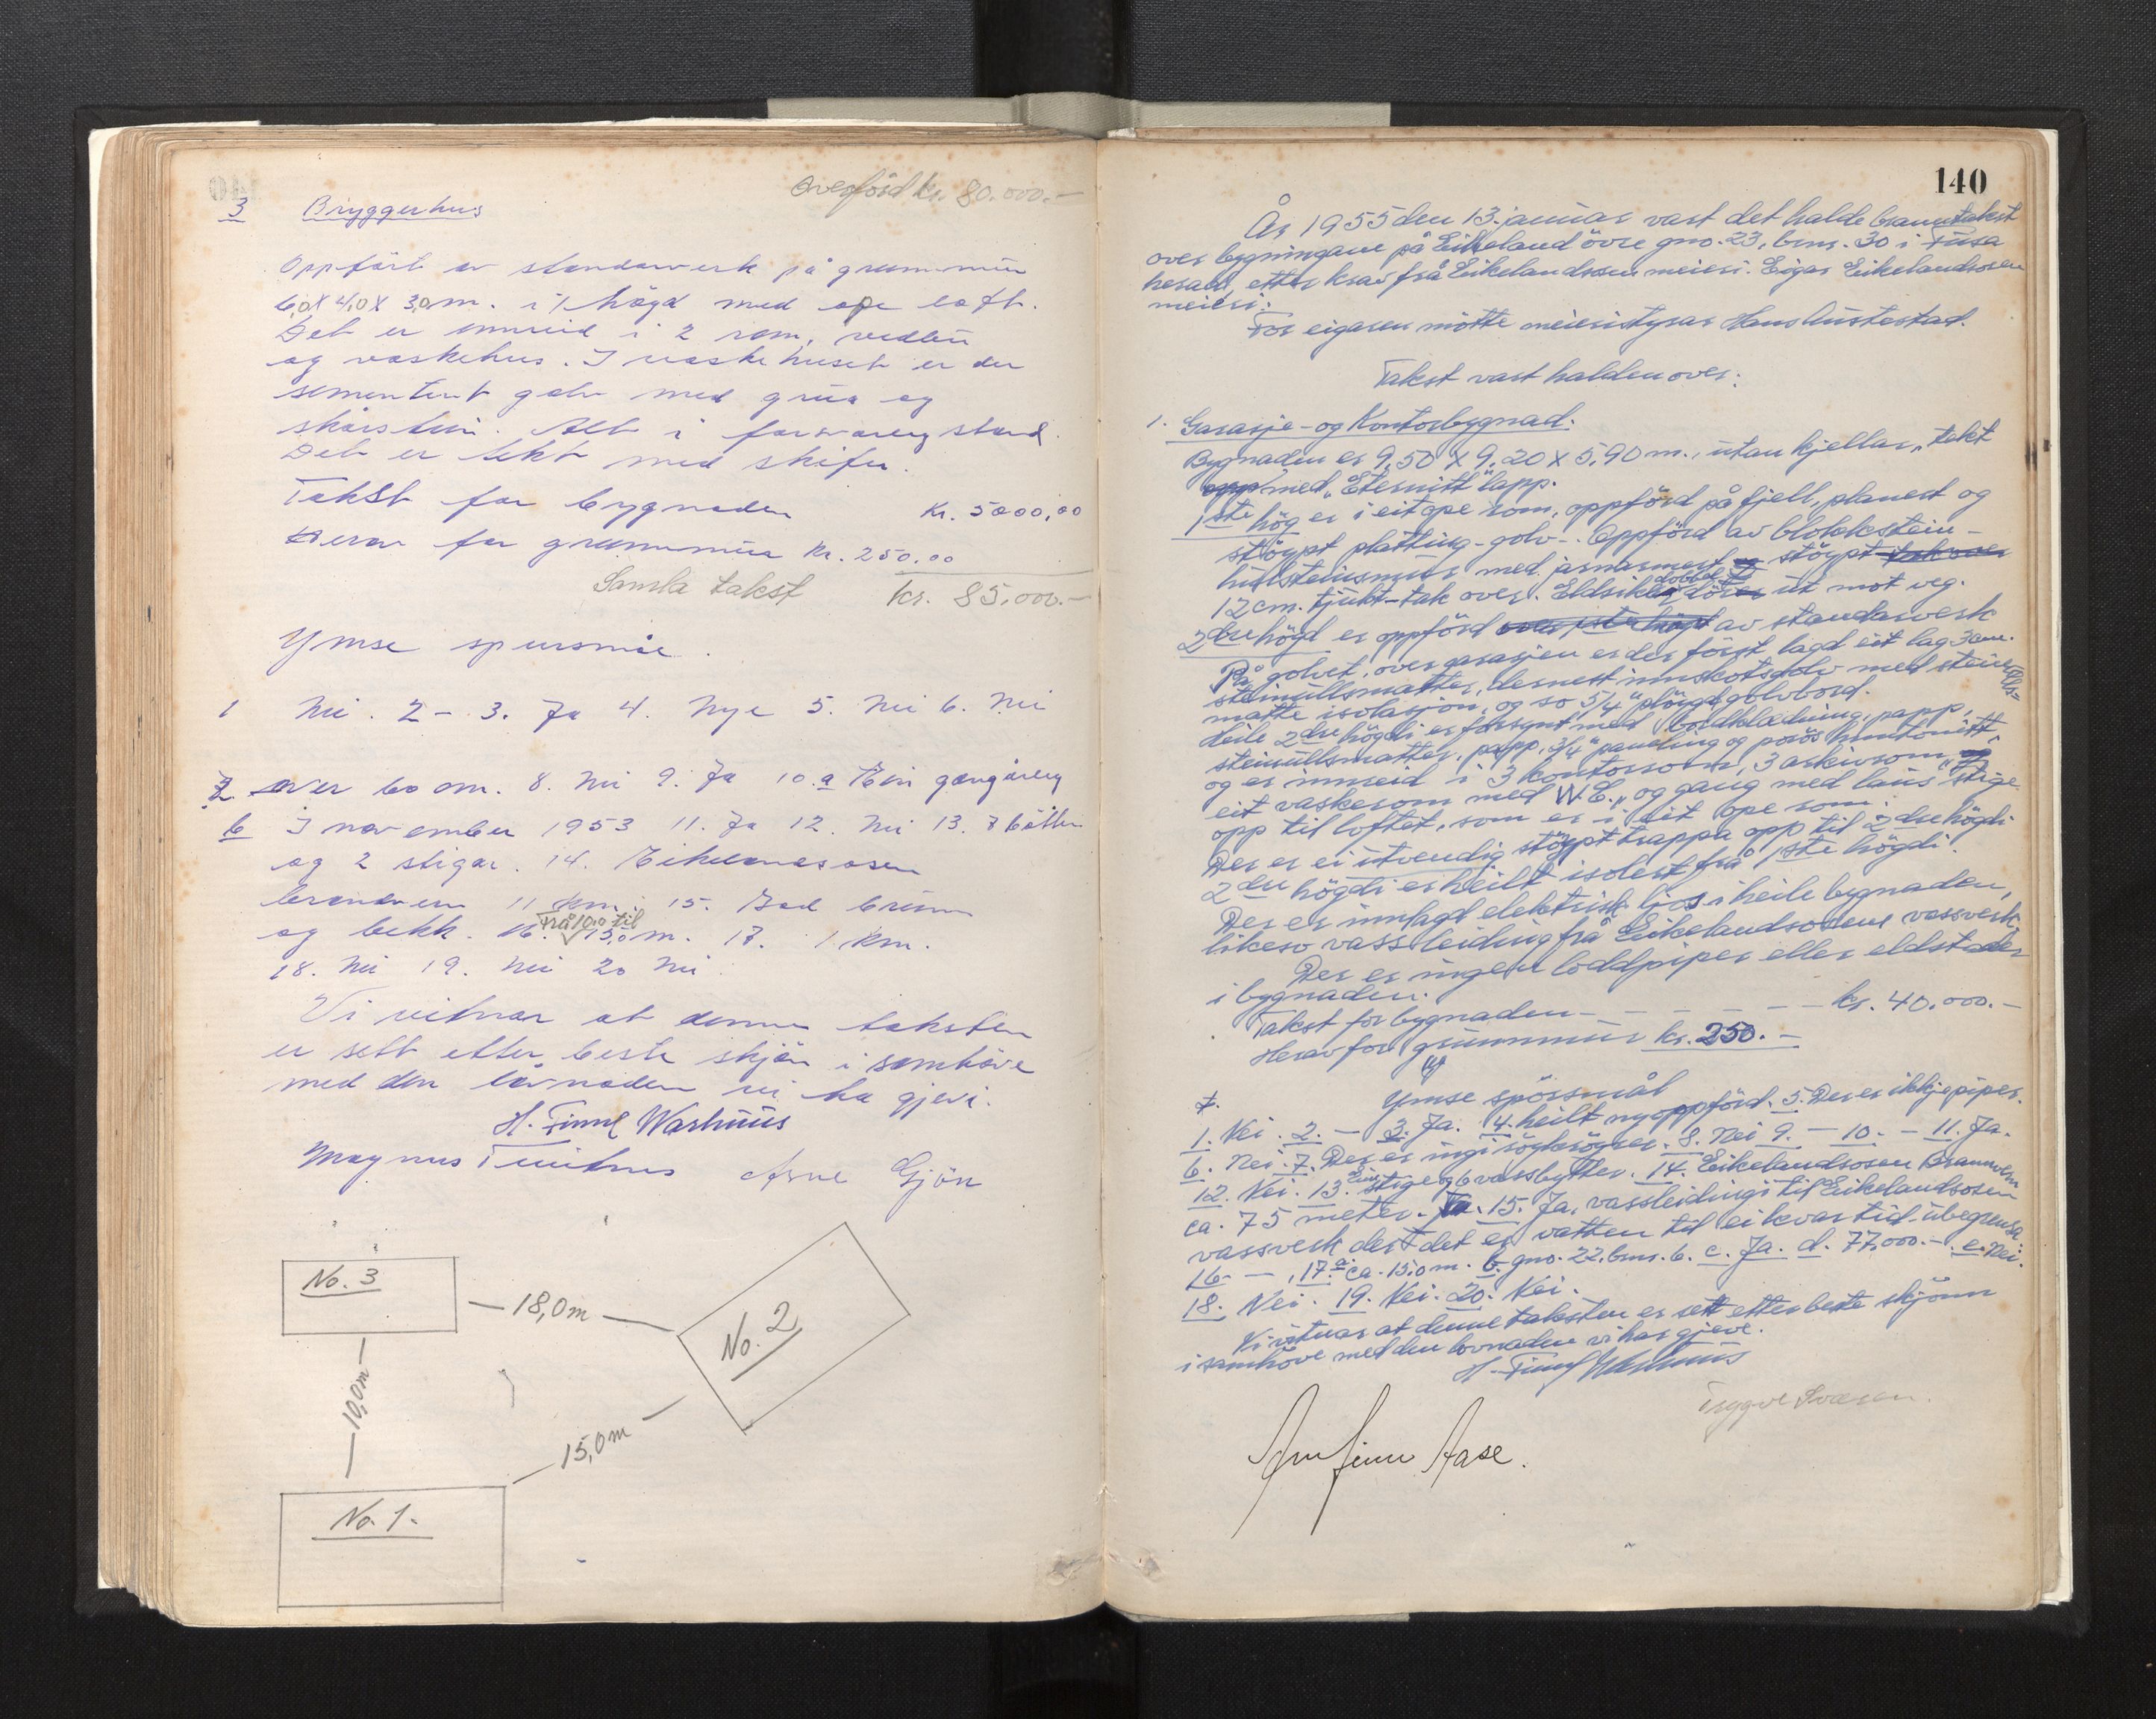 Overförd kr. 80.000.-
3 Bryggerhus
Oppfört av standarverk på grunnmur
6,0 x 4,0 x 3,0 m. i 1 högd med ope loft.
Det er innreid i 2 rom, vedbu
og vaskehus. I vaskehuset er der
sementert golv med grua og
skårstein. Alt i forsvarleg stand.
Det er tekt med skifer.
Takst for bygnaden kr. 5000,00
Herav for grunnmur kr. 250,00
Samla takst kr. 85.000.-
Ymse spursmål.
1 Nei. 2 - 3. Ja 4. Nye 5. Nei 6. Nei
7. Over 60 cm. 8. Nei 9. Ja 10. a Ein gong årleg
b I november 1953 11. Ja 12. Nei 13. 8 bötter
og 2 stigar. 14. Eikelandsosen
brannvern 11 km. 15. God brunn
og bekk. 16. Frå 10,0 til 15,0 m. 17. 1 km.
18. Nei 19. Nei 20 Nei.
Vi vitnar at denne taksten
er sett etter beste skjön i samhöve
med den lovnaden vi ha gjevi.
H. Finne Warhuus
Magnus Tveitnes Arne Gjön
No. 3
- 18,0 m -
No. 2
- 10,0 m -
- 15,0 m -
No. 1.
140
År 1955 den 13. januar vart det halde branntakst
over bygningane på Eikeland övre gno. 23, brnr. 30 i Fusa
herad, etter krav frå Eikelandsosen meieri. Eigar Eikelandsosen
meieri.
For eigaren mötte meieristyrar Hans Austestad.
Takst vart halden over:
1. Garasje- og Kontorbygnad.
Bygnaden er 9,50 x 9,20 x 5,90 m., utan kjellar, tekt
opp med "Eternitt" lapp.
1ste hög er i eit ope rom, oppförd på fjell, planert og
stöypt platting-golv-. Oppförd av blokkstein-
hulsteinsmur med jarnarmert og stöypt tak over
12 cm. tjukt-tak over. Eldsikker dobbel dör ut mot veg.
2dre högd er oppförd over 1ste högd av standarverk
På golvet, over garasjen er der först lagd eit lag 3 cm.
steinullsmatter, dernest innskotsgolv med steinull-
matte isolasjon, og so 5/4" plögde golvbord.
Heile 2dre högdi er forsynt med bordklædning, papp,
steinullsmatter, papp, 3/4" paneling og porös huntonitt,
og er innreid i 3 kontorrom, 3 arkivrom, og
eit vaskerom med W.C., og gang med laus stige
opp til loftet, som er i eit ope rom.
Der er ei utvendig stöypt trappa opp til 2dre högdi.
2dre högdi er heilt isolert frå 1ste högdi.
Der er innlagd elektrisk ljos i heile bygnaden,
likeso vassleiding frå Eikelandsosens vassverk.
Der er ingen loddpiper eller eldstader
i bygnaden.
Takst for bygnaden - - - - - - kr. 40.000.-
Herav for grunnmur kr. 250.-
Ymse spörsmål
1. Nei. 2. - 3. Ja. 4. heilt nyoppförd. 5. Der er ikkje piper.
6. Nei. 7. Der er ingi röykröyrer. 8. Nei 9. - 10. - 11. Ja.
12. Nei. 13. Ein stige og 6 vassbytter. 14. Eikelandsosen Brannvern
ca. 75 meter. 15. Ja, vassleidingi til Eikelandsosen
vassverk der det er vatten til ei kvar tid - ubegrensa.
16. - , 17. a. ca. 15,0 m. b. gno. 22, brnr. 6. c. Ja. d. 77.000.-. e. Nei.
18. Nei. 19. Nei. 20. Nei.
Vi vitnar at denne taksten er sett etter beste skjönn
i samhöve med den lovnaden vi har gjeve.
H. Finne Warhuus
Trygve Sværen.
Arnfinn Aase.